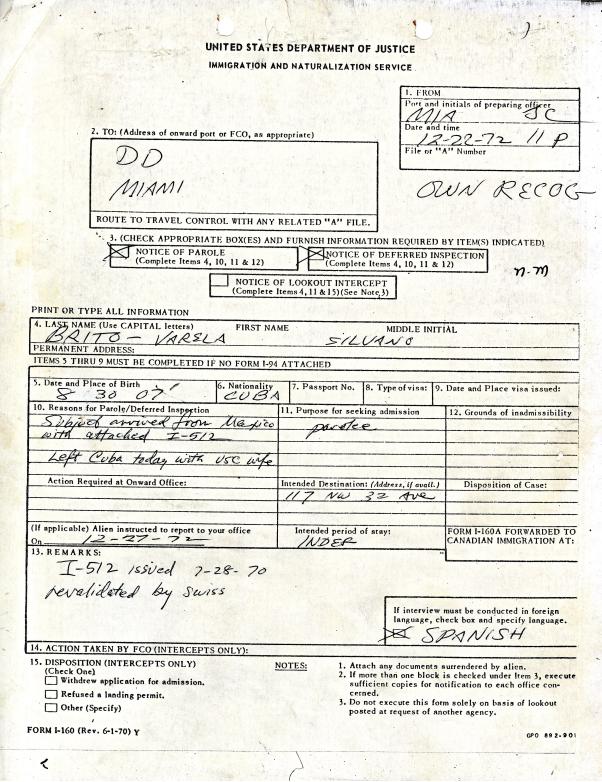 UNITED STATES DEPARTMENT OF JUSTICE
IMMIGRATION AND NATURALIZATION SERVICE
1. FROM
Port and initials of preparing officer
MIA JC
Date and time
12-22-72 11 P
File or "A" Number
2. TO: (Address of onward port or FCO, as appropriate)
DD
MIAMI
ROUTE TO TRAVEL CONTROL WITH ANY RELATED "A" FILE.
OWN RECOG
3. (CHECK APPROPRIATE BOX(ES) AND FURNISH INFORMATION REQUIRED BY ITEM(S) INDICATED)
NOTICE OF PAROLE
(Complete Items 4, 10, 11 & 12)
NOTICE OF DEFERRED INSPECTION
(Complete Items 4, 10, 11 & 12)
n.m
NOTICE OF LOOKOUT INTERCEPT
(Complete Items 4, 11 & 15) (See Note 3)
PRINT OR TYPE ALL INFORMATION
4. LAST NAME (Use CAPITAL letters) FIRST NAME MIDDLE INITIAL
BRITO - VARELA SILVANO
PERMANENT ADDRESS:
ITEMS 5 THRU 9 MUST BE COMPLETED IF NO FORM I-94 ATTACHED
5. Date and Place of Birth 6. Nationality 7. Passport No. 8. Type of visa: 9. Date and Place visa issued:
8 30 07 CUBA
10. Reasons for Parole/Deferred Inspection 11. Purpose for seeking admission 12. Grounds of inadmissibility
Subject arrived from Mexico parolee
with attached I-512
Left Cuba today with USC wife
Action Required at Onward Office: Intended Destination: (Address, if avail.) Disposition of Case:
117 NW 32 Ave
(If applicable) Alien instructed to report to your office Intended period of stay: FORM I-160A FORWARDED TO
On 12-27-72 INDEF CANADIAN IMMIGRATION AT:
13. REMARKS:
I-512 issued 7-28-70
revalidated by Swiss
If interview must be conducted in foreign
language, check box and specify language.
SPANISH
14. ACTION TAKEN BY FCO (INTERCEPTS ONLY):
15. DISPOSITION (INTERCEPTS ONLY)
(Check One)
Withdrew application for admission.
Refused a landing permit.
Other (Specify)
NOTES:
1. Attach any documents surrendered by alien.
2. If more than one block is checked under Item 3, execute
sufficient copies for notification to each office con-
cerned.
3. Do not execute this form solely on basis of lookout
posted at request of another agency.
FORM I-160 (Rev. 6-1-70) Y
GPO 892-901